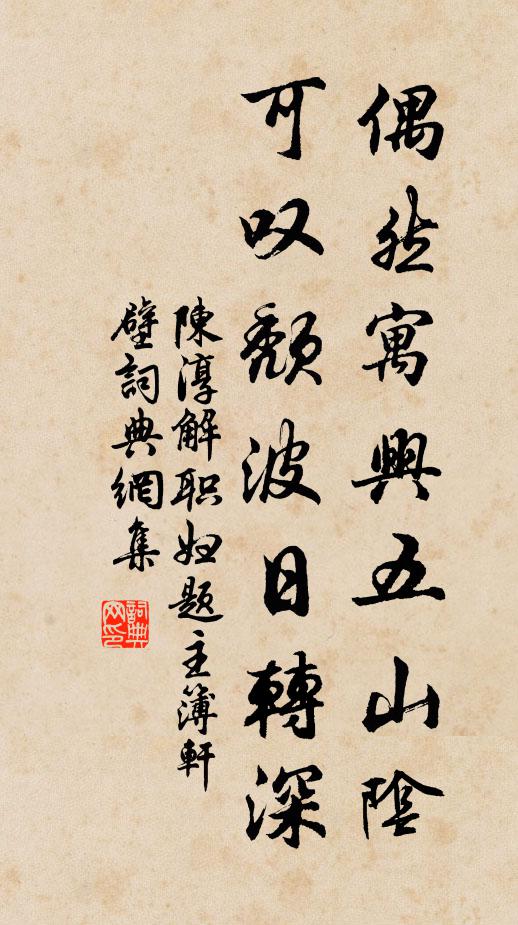 偶然寓興五山陰
可叹頹波日轉深
陳淳解职始题主簿軒
壁詞典網集
詞典网印